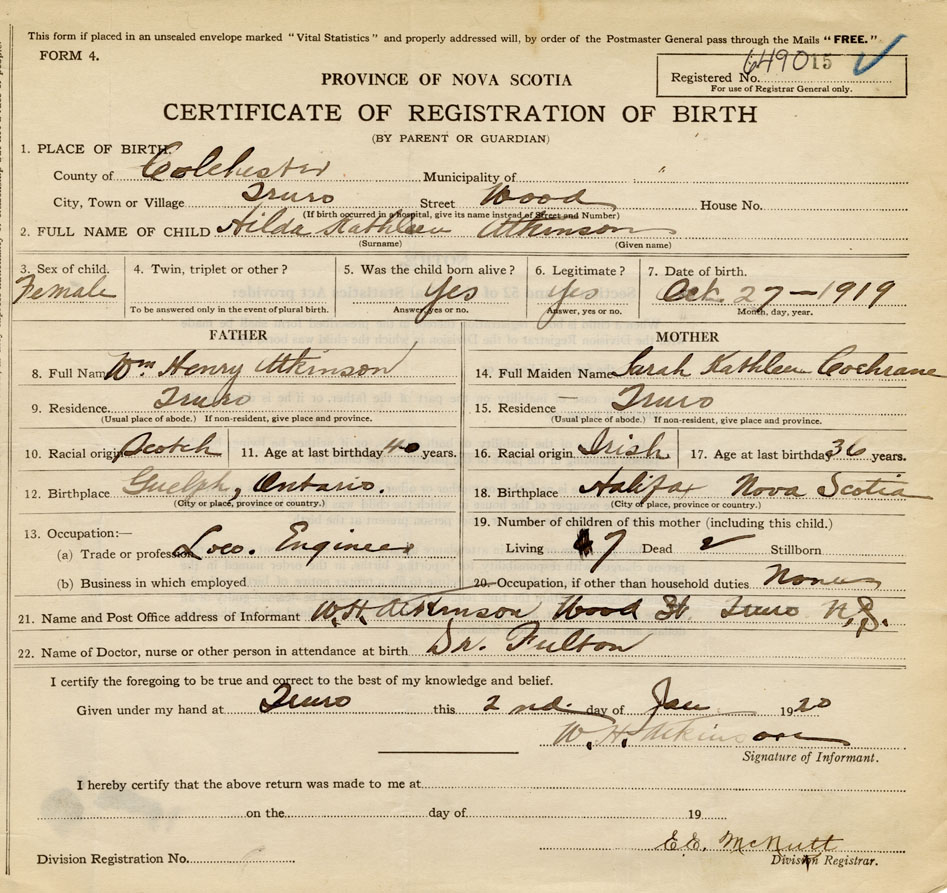 This form if placed in an unsealed envelope marked "Vital Statistics" and properly addressed will, by order of the Postmaster General pass through the Mails "FREE."
FORM 4.
64901 5
Registered No.
For use of Registrar General only.
PROVINCE OF NOVA SCOTIA
CERTIFICATE OF REGISTRATION OF BIRTH
(BY PARENT OR GUARDIAN)
1. PLACE OF BIRTH:
County of Colchester Municipality of "
City, Town or Village Truro Street Wood House No.
(If birth occurred in a hospital, give its name instead of Street and Number)
2. FULL NAME OF CHILD Hilda Kathleen Atkinson
(Surname) (Given name)
3. Sex of child. 4. Twin, triplet or other? 5. Was the child born alive? 6. Legitimate? 7. Date of birth.
Female Yes Yes Oct. 27-1919
To be answered only in the event of plural birth. Answer, yes or no. Answer, yes or no. Month, day, year.
FATHER MOTHER
8. Full Name Wm Henry Atkinson 14. Full Maiden Name Sarah Kathleen Cochrane
9. Residence Truro 15. Residence Truro
(Usual place of abode.) If non-resident, give place and province. (Usual place of abode.) If non-resident, give place and province.
10. Racial origin Scotch 11. Age at last birthday 40 years. 16. Racial origin Irish 17. Age at last birthday 36 years.
12. Birthplace Guelph, Ontario. 18. Birthplace Halifax Nova Scotia
(City or place, province or country.) (City or place, province or country.)
13. Occupation:— 19. Number of children of this mother (including this child.)
(a) Trade or profession Loco. Engineer Living 7 Dead 2 Stillborn
(b) Business in which employed 20. Occupation, if other than household duties None
21. Name and Post Office address of Informant W.H. Atkinson Wood St. Truro N.S.
22. Name of Doctor, nurse or other person in attendance at birth Dr. Fulton
I certify the foregoing to be true and correct to the best of my knowledge and belief.
Given under my hand at Truro this 2nd. day of Jan 1920
W. H. Atkinson
Signature of Informant.
I hereby certify that the above return was made to me at
on the day of 19
E.E. McNutt
Division Registration No. Division Registrar.